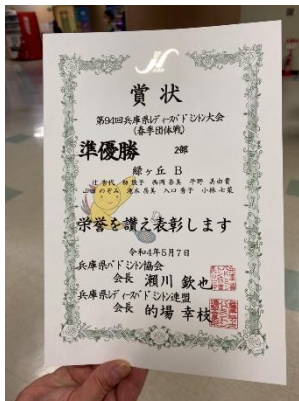 賞状
第94回兵庫県レディースバドミントン大会
(春季団体戦)
準優勝 2部
緑ヶ丘 B
栄誉を讃え表彰します
令和4年5月7日
兵庫県バドミントン協会
会長 瀬川 欽也
兵庫県レディースバドミントン連盟
会長 的場 幸枝